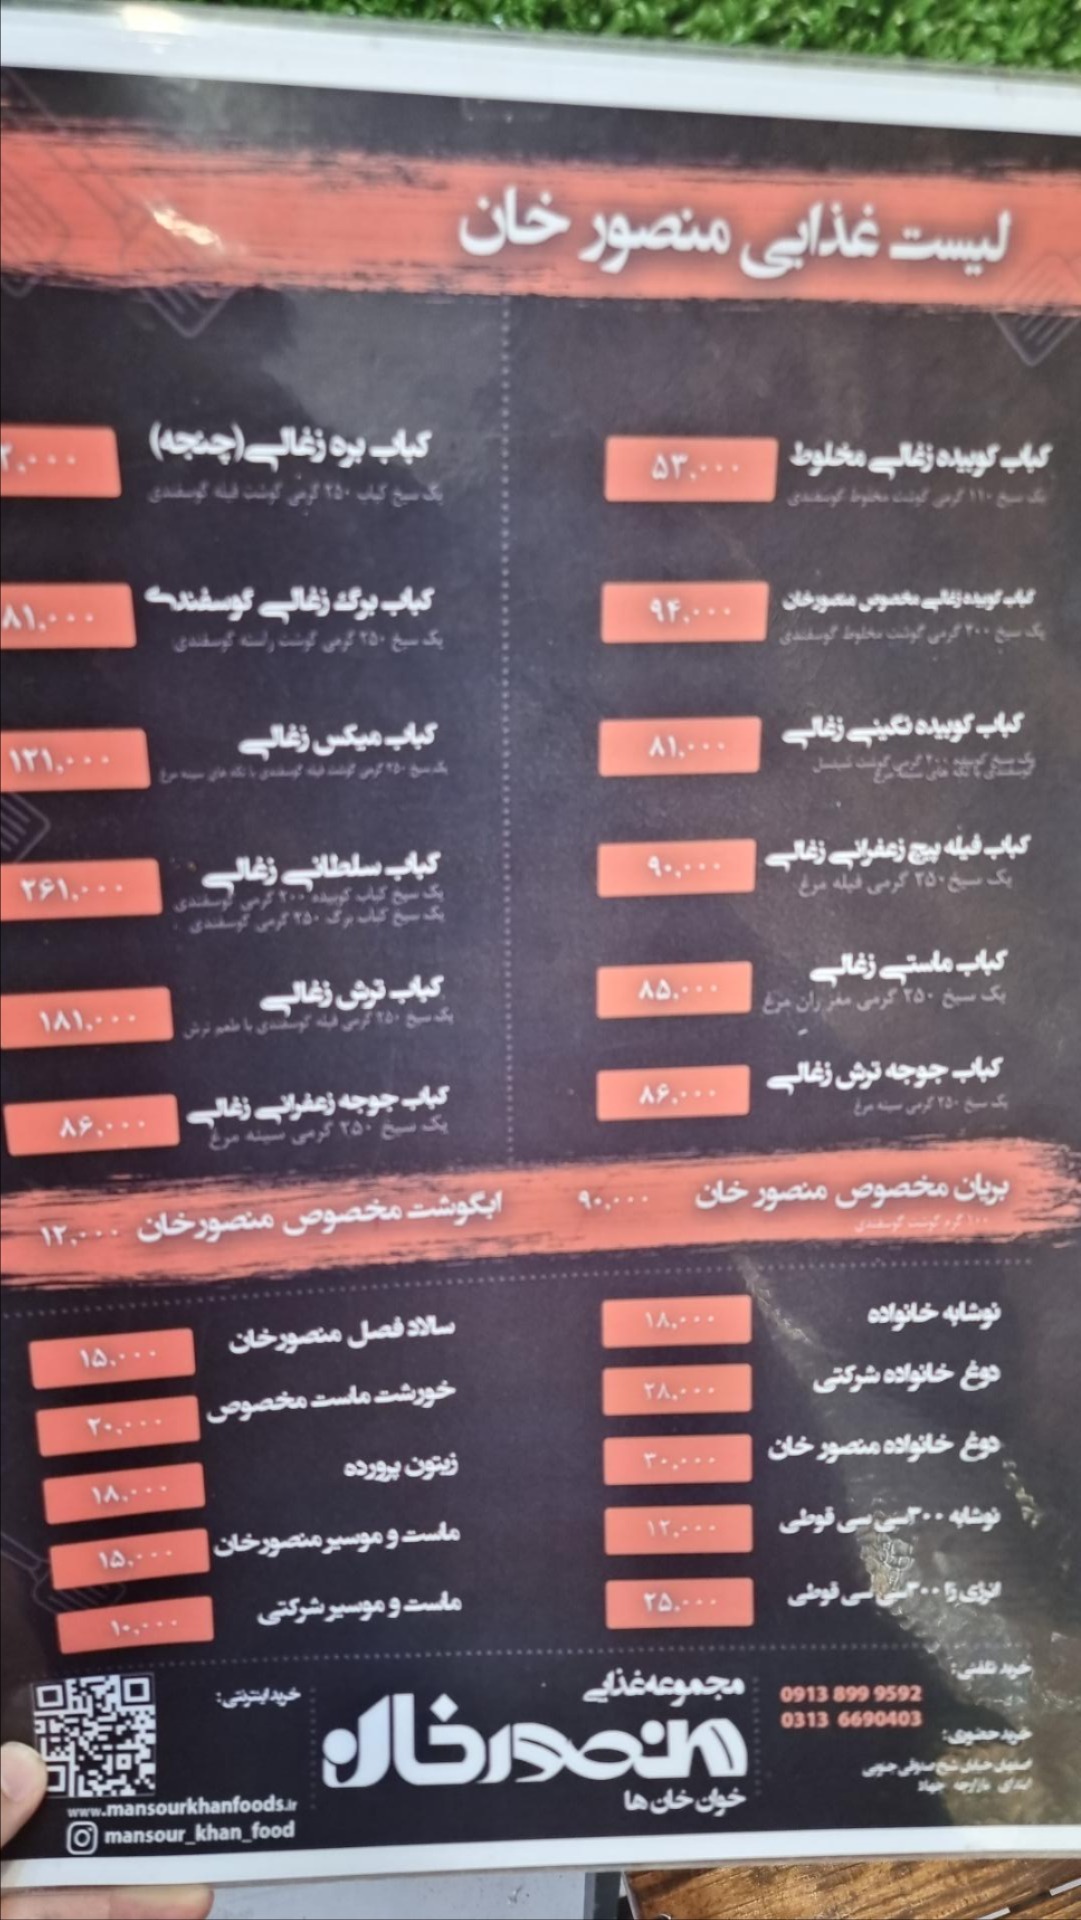 لیست غذایی منصور خان
کباب کوبیده زغالی مخلوط
۵۳,۰۰۰
یک سیخ ۱۱۰ گرمی گوشت مخلوط گوسفندی
کباب کوبیده زغالی مخصوص منصورخان
۹۴,۰۰۰
یک سیخ ۲۰۰ گرمی گوشت مخلوط گوسفندی
کباب کوبیده نگینی زغالی
۸۱,۰۰۰
یک سیخ کوبیده ۲۰۰ گرمی گوشت
گوسفندی با تکه های سینه مرغ
کباب فیله پیچ زعفرانی زغالی
۹۰,۰۰۰
یک سیخ ۲۵۰ گرمی فیله مرغ
کباب ماستی زغالی
۸۵,۰۰۰
یک سیخ ۲۵۰ گرمی مغز ران مرغ
کباب جوجه ترش زغالی
۸۶,۰۰۰
یک سیخ ۲۵۰ گرمی سینه مرغ
کباب بره زغالی (چنجه)
۲,۰۰۰
یک سیخ کباب ۲۵۰ گرمی گوشت فیله گوسفندی
کباب برگ زغالی گوسفندی
۸۱,۰۰۰
یک سیخ ۲۵۰ گرمی گوشت راسته گوسفندی
کباب میکس زغالی
۱۲۱,۰۰۰
یک سیخ ۲۵۰ گرمی گوشت فیله گوسفندی با تکه های سینه مرغ
کباب سلطانی زغالی
۲۶۱,۰۰۰
یک سیخ کباب کوبیده ۲۰۰ گرمی گوسفندی
یک سیخ کباب برگ ۲۵۰ گرمی گوسفندی
کباب ترش زغالی
۱۸۱,۰۰۰
یک سیخ ۲۵۰ گرمی فیله گوسفندی با طعم ترش
کباب جوجه زعفرانی زغالی
۸۶,۰۰۰
یک سیخ ۲۵۰ گرمی سینه مرغ
بریان مخصوص منصور خان ۹۰,۰۰۰
۱۰۰ گرم گوشت گوسفندی
ابگوشت مخصوص منصورخان ۱۲,۰۰۰
نوشابه خانواده ۱۸,۰۰۰
دوغ خانواده شرکتی ۲۸,۰۰۰
دوغ خانواده منصور خان ۳۰,۰۰۰
نوشابه ۳۰۰سی سی قوطی ۱۲,۰۰۰
انرژی زا ۳۰۰سی سی قوطی ۲۵,۰۰۰
سالاد فصل منصورخان ۱۵,۰۰۰
خورشت ماست مخصوص ۲۰,۰۰۰
زیتون پرورده ۱۸,۰۰۰
ماست و موسیر منصورخان ۱۵,۰۰۰
ماست و موسیر شرکتی ۱۰,۰۰۰
خرید تلفنی:
0913 899 9592
0313 6690403
خرید حضوری:
اصفهان خیابان شیخ صدوقی جنوبی
ابتدای بازارچه
مجموعه غذایی
منصورخان
خوان خان ها
خرید اینترنتی:
www.mansourkhanfoods.ir
mansour_khan_food